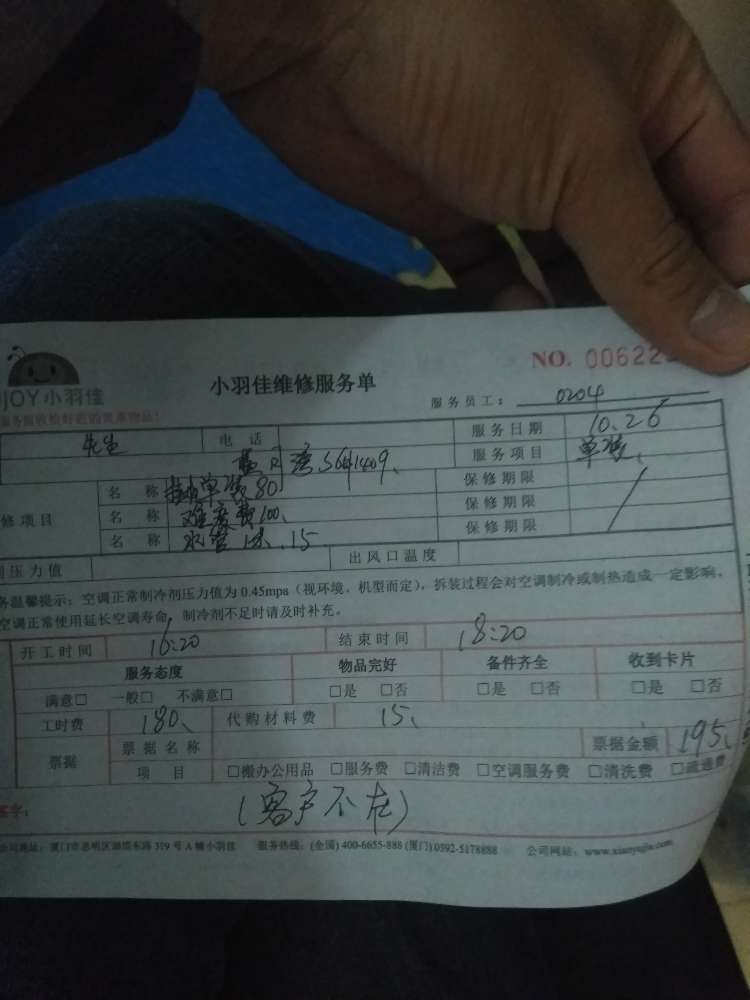 NO. 00622
JOY小羽佳
小羽佳维修服务单
服务员工: 0204
先生 电话 服务日期 10.26
服务项目 单装
名称 挂机单装 80 保修期限
修项目 名称 难度费100、 保修期限
名称 水管1米、15 保修期限
压力值 出风口温度
务温馨提示:空调正常制冷剂压力值为 0.45mpa(视环境、机型而定),拆装过程会对空调制冷或制热造成一定影响。
空调正常使用延长空调寿命,制冷剂不足时请及时补充。
开工时间 16:20 结束时间 18:20
服务态度 物品完好 备件齐全 收到卡片
满意□ 一般□ 不满意□ □是 □否 □是 □否 □是 □否
工时费 180、 代购材料费 15、
票据 票据名称 票据金额 195、
项目 □搬办公用品 □服务费 □清洁费 □空调服务费 □清洗费 □疏通费
签字: (客户不在)
公司地址:厦门市思明区湖滨东路 319 号 A 幢小羽佳 服务热线:(全国) 400-6655-888 (厦门) 0592-5178888 公司网站:www.xiaoyujia.com